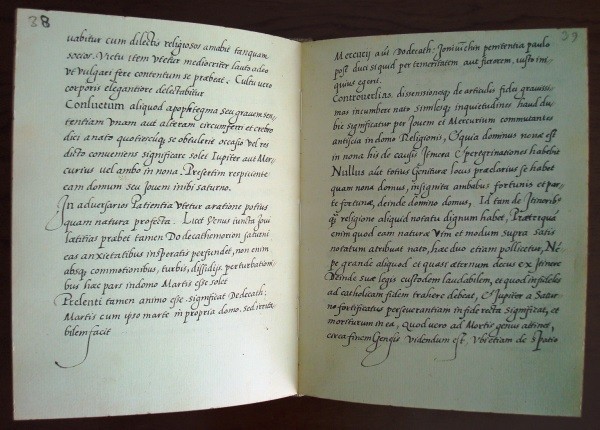 38
uabitur cum dilectis religiosos amabit tanquam
socios. Victu item vtetur mediocriter lauto adeo
vt vulgari fere contentum se præbeat: Cultu vero
corporis elegantiore delectabitur
Consuetum aliquod apophtegma seu grauem sen-
tentiam vnam aut alteram circumferri et crebro
dici a nato quotiescūq; se obtulerit occasio vel res
dicto conueniens significare solet Iupiter aut Mer-
curius vel ambo in nona. Presertim respiciente
eam domum seu Jouem inibi saturno.
In aduersariis Patientia vtetur a ratione potius
quam natura profecta. Licet Venus iuncta soli
lætitias præbet tamen Dodecathemorion saturni
eas anxietatibus insperatis perfundet, non enim
absq; commotionibus, turbis, dissidiis perturbation-
bus hæc pars in domo Martis esse solet
Præcellenti tamen animo esse significat Dodecath:
Martis cum ipso marte in propria domo. Sed irasci-
bilem facit
39
Mercurij aut Dodecath: Iouium penitentia paulo
post duci si quid per temeritatem aut furorem, iusto ini-
quius egerit.
Controuersias dissensionesq; de articulis fidei grauissi-
mas incumbere nate similesq; inquietudines haud du-
bie significatur per Jouem et Mercurium commutantes
antiscia in domo Religionis, Et quia dominus nonæ est
in nona his de causis Itinera & peregrinationes habebit
Nullus alẽ totius Genituræ locus præclarius se habet
quam nona domus, insignita ambabus fortunis et par-
te fortunæ, deinde domino domus, Id tam de Itineribꝫ
q̃ religione aliquid notatu dignum habet, Præterquã
enim quod eam naturæ Vim et modum supra satis
notatum atribuat nato, hæc duo etiam pollicetur, Nẽ-
pe grande aliquod et quasi æternum decus ex Itinere
Deinde suæ legis custodem laudabilem, et quod infideles
ad catholicam fidem trahere debeat, Et Jupiter a Satur-
no fortificatus perseuerantiam in fide recta significat, et
moriturum in ea, quod vero ad Mortis genus attinet,
circa finem Gengis videndum est. Vbi etiam de spatio